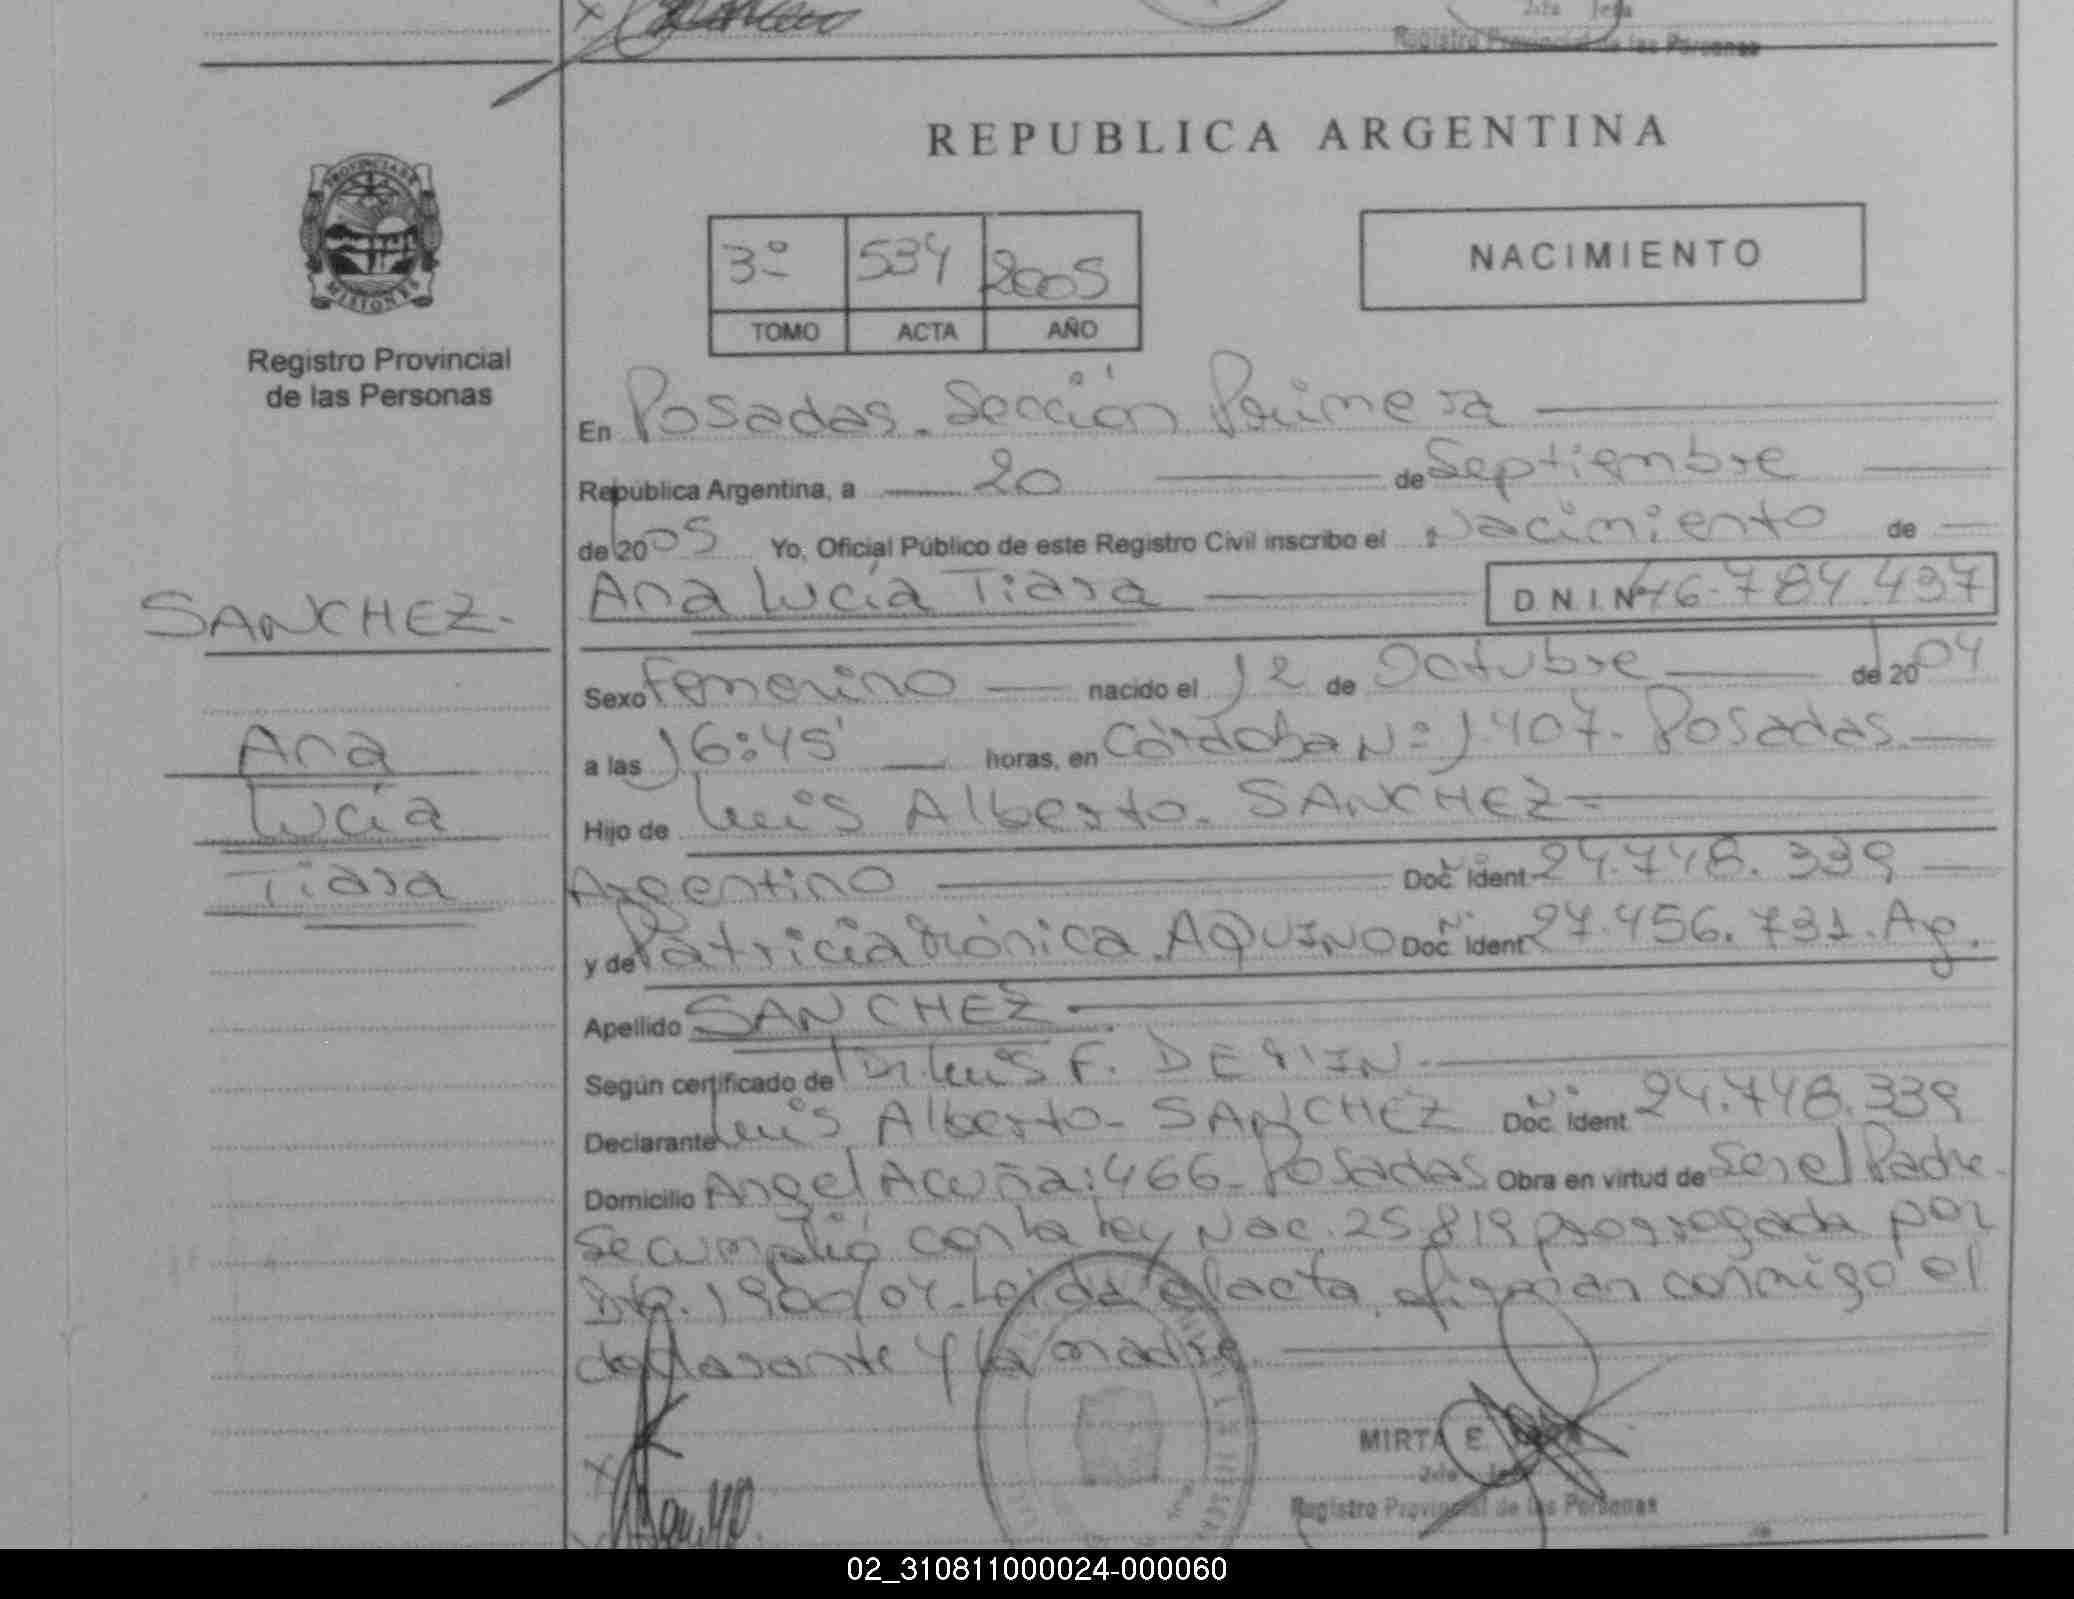 Registro Provincial de las Personas
REPUBLICA ARGENTINA
PROVINCIA DE
MISIONES
Registro Provincial
de las Personas
3º 534 2005
TOMO ACTA AÑO
NACIMIENTO
En Posadas. Sección Primera
República Argentina, a 20 de Septiembre
de 2005 Yo, Oficial Público de este Registro Civil inscribo el Nacimiento de
Ana Lucía Tiara D N I. Nº 46.784.437
SANCHEZ.
Ana
Lucía
Tiara
Sexo Femenino nacido el 12 de Octubre de 2004
a las 16:45' horas, en Córdoba Nº 1407. Posadas.
Hijo de Luis Alberto. SANCHEZ
Argentino Doc. Ident. 24.748.339
y de Patricia Mónica. AQUINO Doc. Ident. 27.456.731. Ag.
Apellido SANCHEZ.
Según certificado de Dr. Luis F.
Declarante Luis Alberto. SANCHEZ Doc. Ident. 24.748.339
Domicilio Angel Acuña: 466. Posadas Obra en virtud de Ser el Padre.
Se cumplió con la Ley Nac. 25819 prorrogada por
1900/04. Leída el acta, firman conmigo el
declarante y la madre
MIRTA E.
Jefa
Registro Provincial de las Personas
02_310811000024-000060